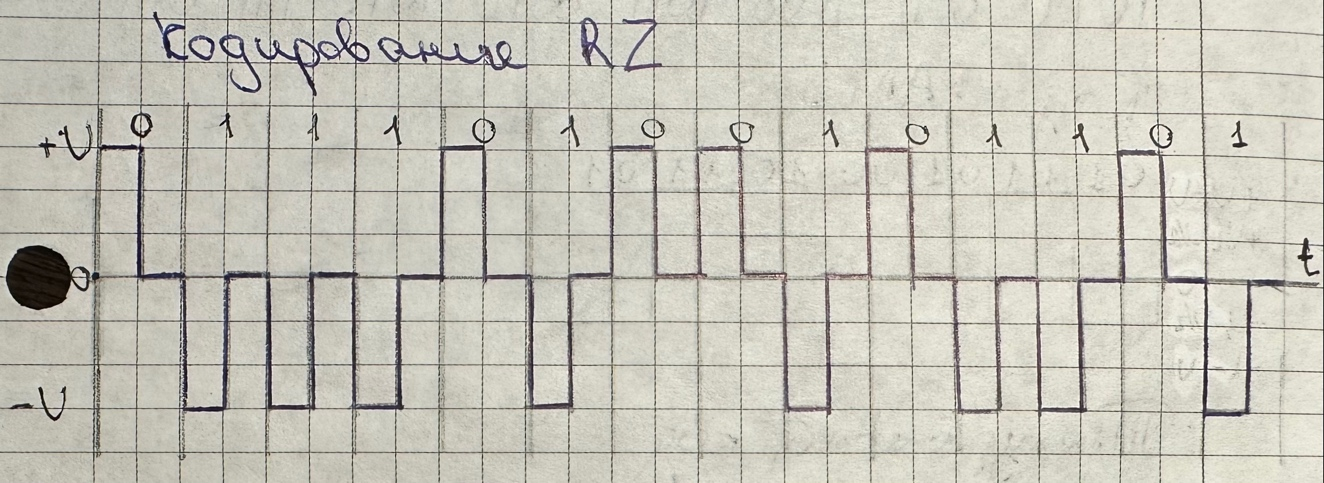 Кодирование RZ
+U 0 1 1 1 0 1 0 0 1 0 1 1 0 1
0 t
-U